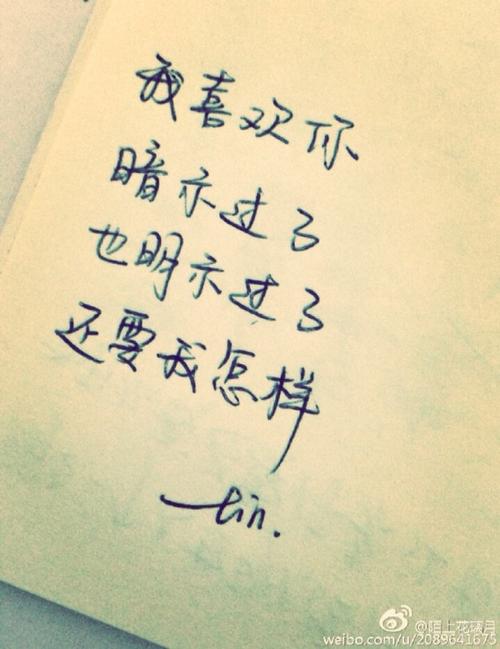 我喜欢你
暗示过了
也明示过了
还要我怎样
—lin.
@陌上花破月
weibo.com/u/2089641675